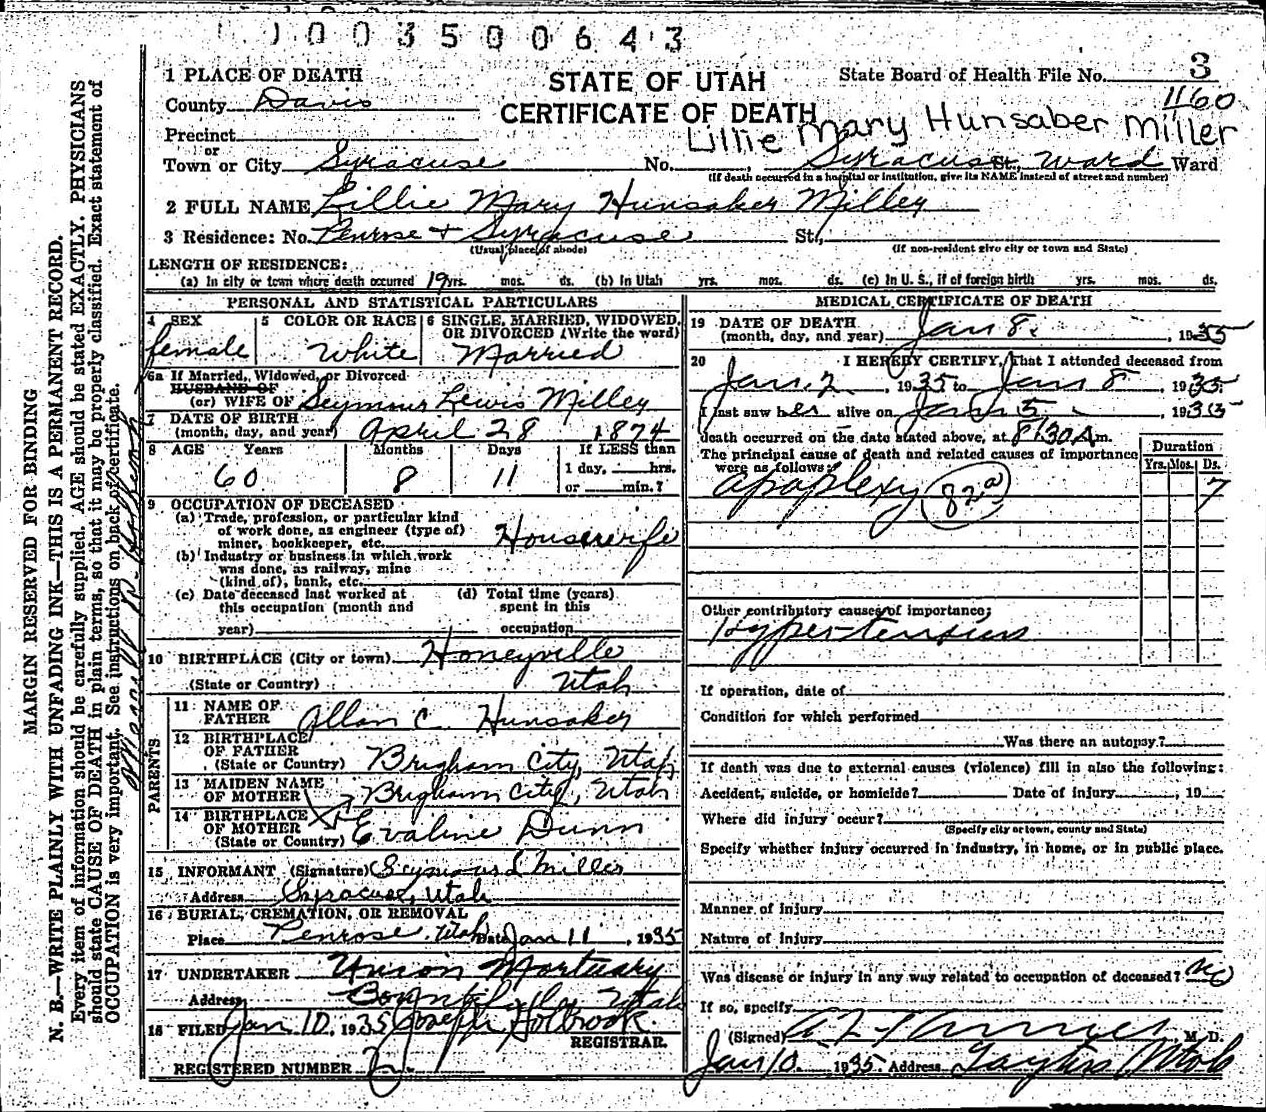 0 0 3 5 0 0 6 4 3
1 PLACE OF DEATH
County Davis
Precinct
or
Town or City Syracuse
STATE OF UTAH
CERTIFICATE OF DEATH
State Board of Health File No. 3
1160
Lillie Mary Hunsaber Miller
No. , Syracuse St., Ward Ward
(If death occurred in a hospital or institution, give its NAME instead of street and number)
2 FULL NAME Lillie Mary Hunsaker Miller
3 Residence: No. Penrose + Syracuse St.,
(Usual place of abode) (If non-resident give city or town and State)
LENGTH OF RESIDENCE:
(a) In city or town where death occurred 19 yrs. mos. ds. (b) In Utah yrs. mos. ds. (c) In U. S., if of foreign birth yrs. mos. ds.
PERSONAL AND STATISTICAL PARTICULARS
4 SEX female
5 COLOR OR RACE White
6 SINGLE, MARRIED, WIDOWED, OR DIVORCED (Write the word) Married
6a If Married, Widowed, or Divorced
HUSBAND OF
(or) WIFE OF Seymour Lewis Miller
7 DATE OF BIRTH
(month, day, and year) April 28 1874
8 AGE Years 60 Months 8 Days 11 If LESS than
1 day, hrs.
or min.?
9 OCCUPATION OF DECEASED
(a) Trade, profession, or particular kind
of work done, as engineer (type of)
miner, bookkeeper, etc. Housewife
(b) Industry or business in which work
was done, as railway, mine
(kind of), bank, etc.
(c) Date deceased last worked at
this occupation (month and
year)
(d) Total time (years)
spent in this
occupation
10 BIRTHPLACE (City or town) Honeyville
(State or Country) Utah
PARENTS
11 NAME OF
FATHER Allan C Hunsaker
12 BIRTHPLACE
OF FATHER
(State or Country) Brigham City, Utah
13 MAIDEN NAME
OF MOTHER Brigham City, Utah
14 BIRTHPLACE
OF MOTHER
(State or Country) Evaline Dunn
15 INFORMANT (Signature) Seymour L Miller
Address Syracuse, Utah
16 BURIAL, CREMATION, OR REMOVAL
Place Penrose, Utah Date Jan 11, 1935
17 UNDERTAKER Union Mortuary
Address Bountiful, Utah
18 FILED Jan 10, 1935 Joseph Holbrook
REGISTRAR.
REGISTERED NUMBER 2.
MEDICAL CERTIFICATE OF DEATH
19 DATE OF DEATH
(month, day, and year) Jan 8, 1935
20 I HEREBY CERTIFY, That I attended deceased from
Jan. 2, 1935 to Jan 8, 1935
I last saw her alive on Jan 5, 1935
death occurred on the date stated above, at 8:30 A m.
The principal cause of death and related causes of importance
were as follows:
Duration
Yrs. Mos. Ds.
apoplexy 82a 7
Other contributory causes of importance;
Hypertension
If operation, date of
Condition for which performed
Was there an autopsy?
If death was due to external causes (violence) fill in also the following:
Accident, suicide, or homicide? Date of injury , 19
Where did injury occur?
(Specify city or town, county and State)
Specify whether injury occurred in industry, in home, or in public place.
Manner of injury
Nature of injury
Was disease or injury in any way related to occupation of deceased? no
If so, specify
(Signed) M. D.
Jan 10. 1935 Address Utah
MARGIN RESERVED FOR BINDING
N. B.—WRITE PLAINLY WITH UNFADING INK—THIS IS A PERMANENT RECORD.
Every item of information should be carefully supplied. AGE should be stated EXACTLY. PHYSICIANS
should state CAUSE OF DEATH in plain terms, so that it may be properly classified. Exact statement of
OCCUPATION is very important. See instructions on back of certificate.